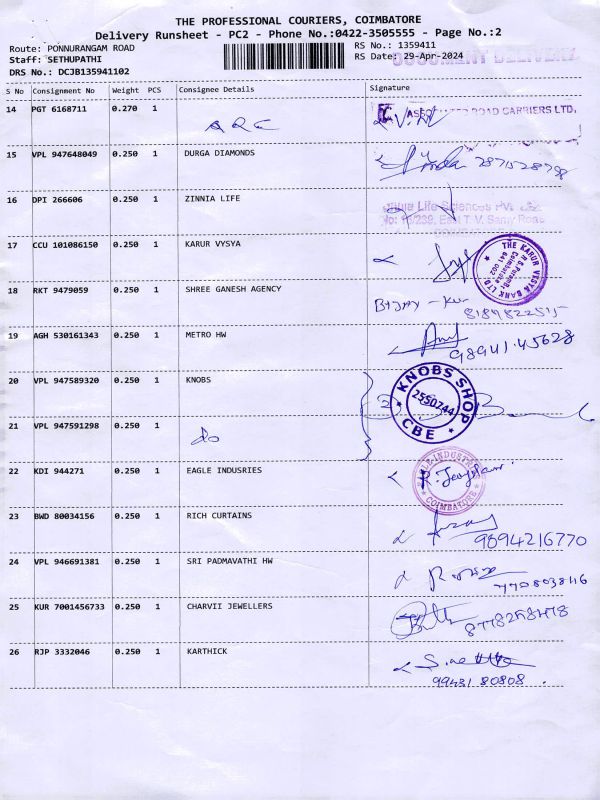 THE PROFESSIONAL COURIERS, COIMBATORE
Delivery Runsheet - PC2 - Phone No.:0422-3505555 - Page No.:2
Route: PONNURANGAM ROAD
Staff: SETHUPATHI
DRS No.: DCJB135941102
RS No.: 1359411
RS Date: 29-Apr-2024
S No Consignment No Weight PCS Consignee Details Signature
14 PGT 6168711 0.270 1 ARC
ASSOCIATED ROAD CARRIERS LTD.
15 VPL 947648049 0.250 1 DURGA DIAMONDS
16 DPI 266606 0.250 1 ZINNIA LIFE
Life Sciences Pvt. Ltd.
17 CCU 101086150 0.250 1 KARUR VYSYA
THE KARUR VYSYA BANK LTD
18 RKT 9479059 0.250 1 SHREE GANESH AGENCY
19 AGH 530161343 0.250 1 METRO HW
98941 45628
20 VPL 947589320 0.250 1 KNOBS
KNOBS SHOP
2550744
CBE
21 VPL 947591298 0.250 1 do
22 KDI 944271 0.250 1 EAGLE INDUSRIES
EAGLE INDUSTRIES
COIMBATORE
23 BWD 80034156 0.250 1 RICH CURTAINS
9894216770
24 VPL 946691381 0.250 1 SRI PADMAVATHI HW
25 KUR 7001456733 0.250 1 CHARVII JEWELLERS
26 RJP 3332046 0.250 1 KARTHICK
99431 80808